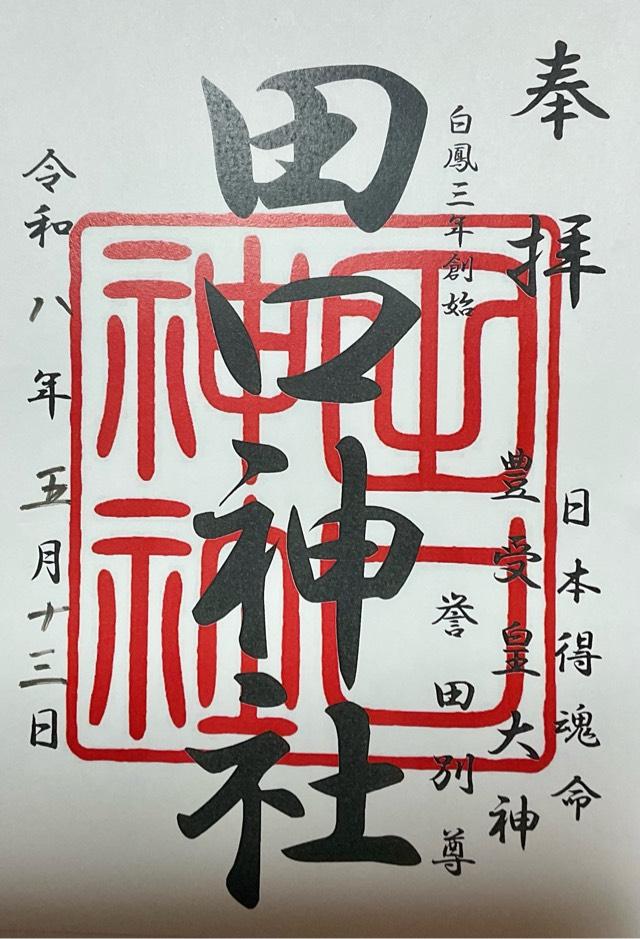 奉拝
日本得魂命
豊受皇大神
誉田別尊
白鳳三年創始
田口神社
田口神社
令和八年五月十三日